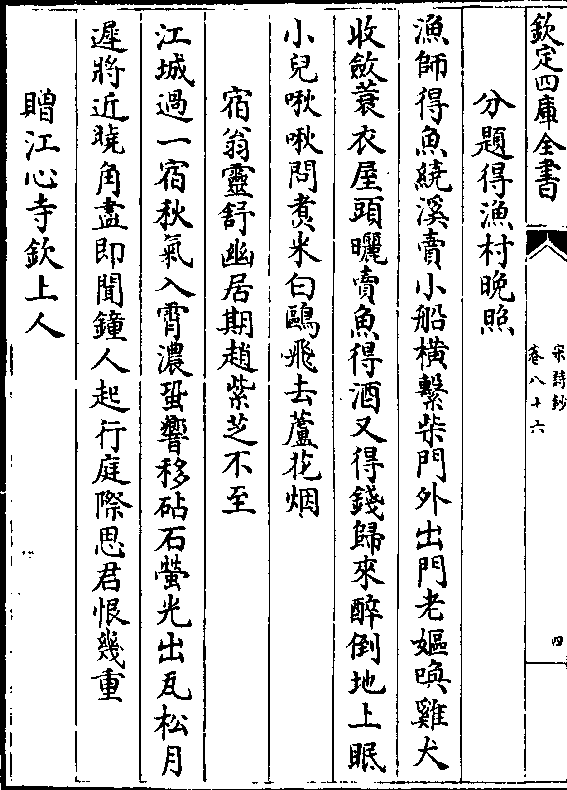 欽定四庫全書
宋詩鈔
卷八十六
四
分題得漁村晚照
漁師得魚繞溪賣小船橫繫柴門外出門老嫗喚雞犬
收斂蓑衣屋頭曬賣魚得酒又得錢歸來醉倒地上眠
小兒啾啾問煮米白鷗飛去蘆花烟
宿翁靈舒幽居期趙紫芝不至
江城過一宿秋氣入霄濃蛩響移砧石螢光出瓦松月
遲將近曉角盡即聞鐘人起行庭際思君恨幾重
贈江心寺欽上人